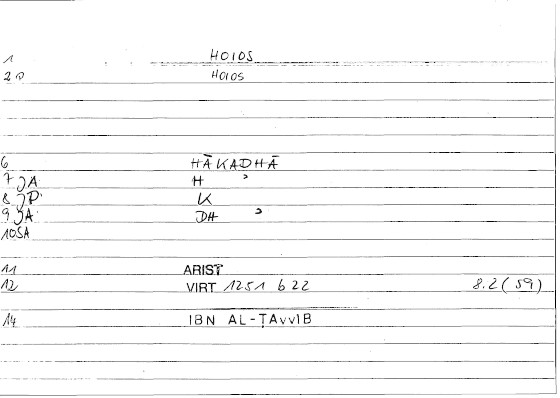 1 HOIOS
2 0 HOIOS
6 HĀKADHĀ
7 JA H ᵓ
8 JP K
9 JA DH ᵓ
10 SA
11 ARIST
12 VIRT 1251 b 22 8.2(59)
14 IBN AL-ṬAYYIB